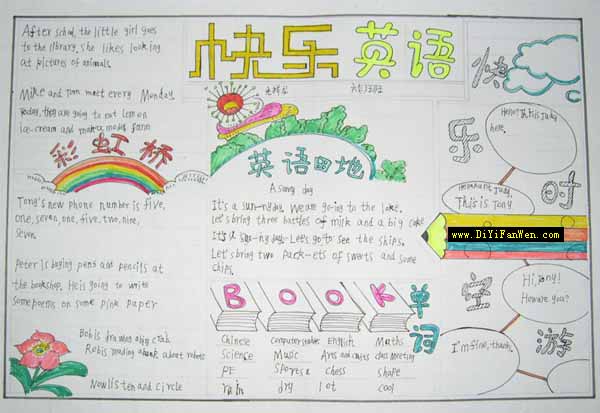 快乐英语
六(1)班
After school, the little girl goes
to the library, she likes looking
at pictures of animals.
Mike and Tom meet every Monday
Today, they are going to eat lemon
ice-cream and make a model farm
彩虹桥
Tony's new phone number is five,
one, seven, one, five, two, nine,
seven.
Peter is buying pens and pencils at
the bookshop, He is going to write
some poems on some pink paper
Bob is drawing a big crab
Rob is reading a book about robots
Now listen and circle
英语田地
A sunny day
It's a sun-ny day. We are going to the lake.
Let's bring three bottles of milk and a big cake
It's a sun-ny day. Let's go to see the ships.
Let's bring two pack-ets of sweets and some
chips.
BOOK
单词
Chinese Computer studies English Maths
Science Music Arts and crafts class meeting
PE Sports chess shape
rain dry lot cool
快
乐
时
空
游
Hello! This is Judy
here.
This is Tony
www.DiYiFanWen.com
Hi, Tony!
How are you?
I'm fine, thanks.